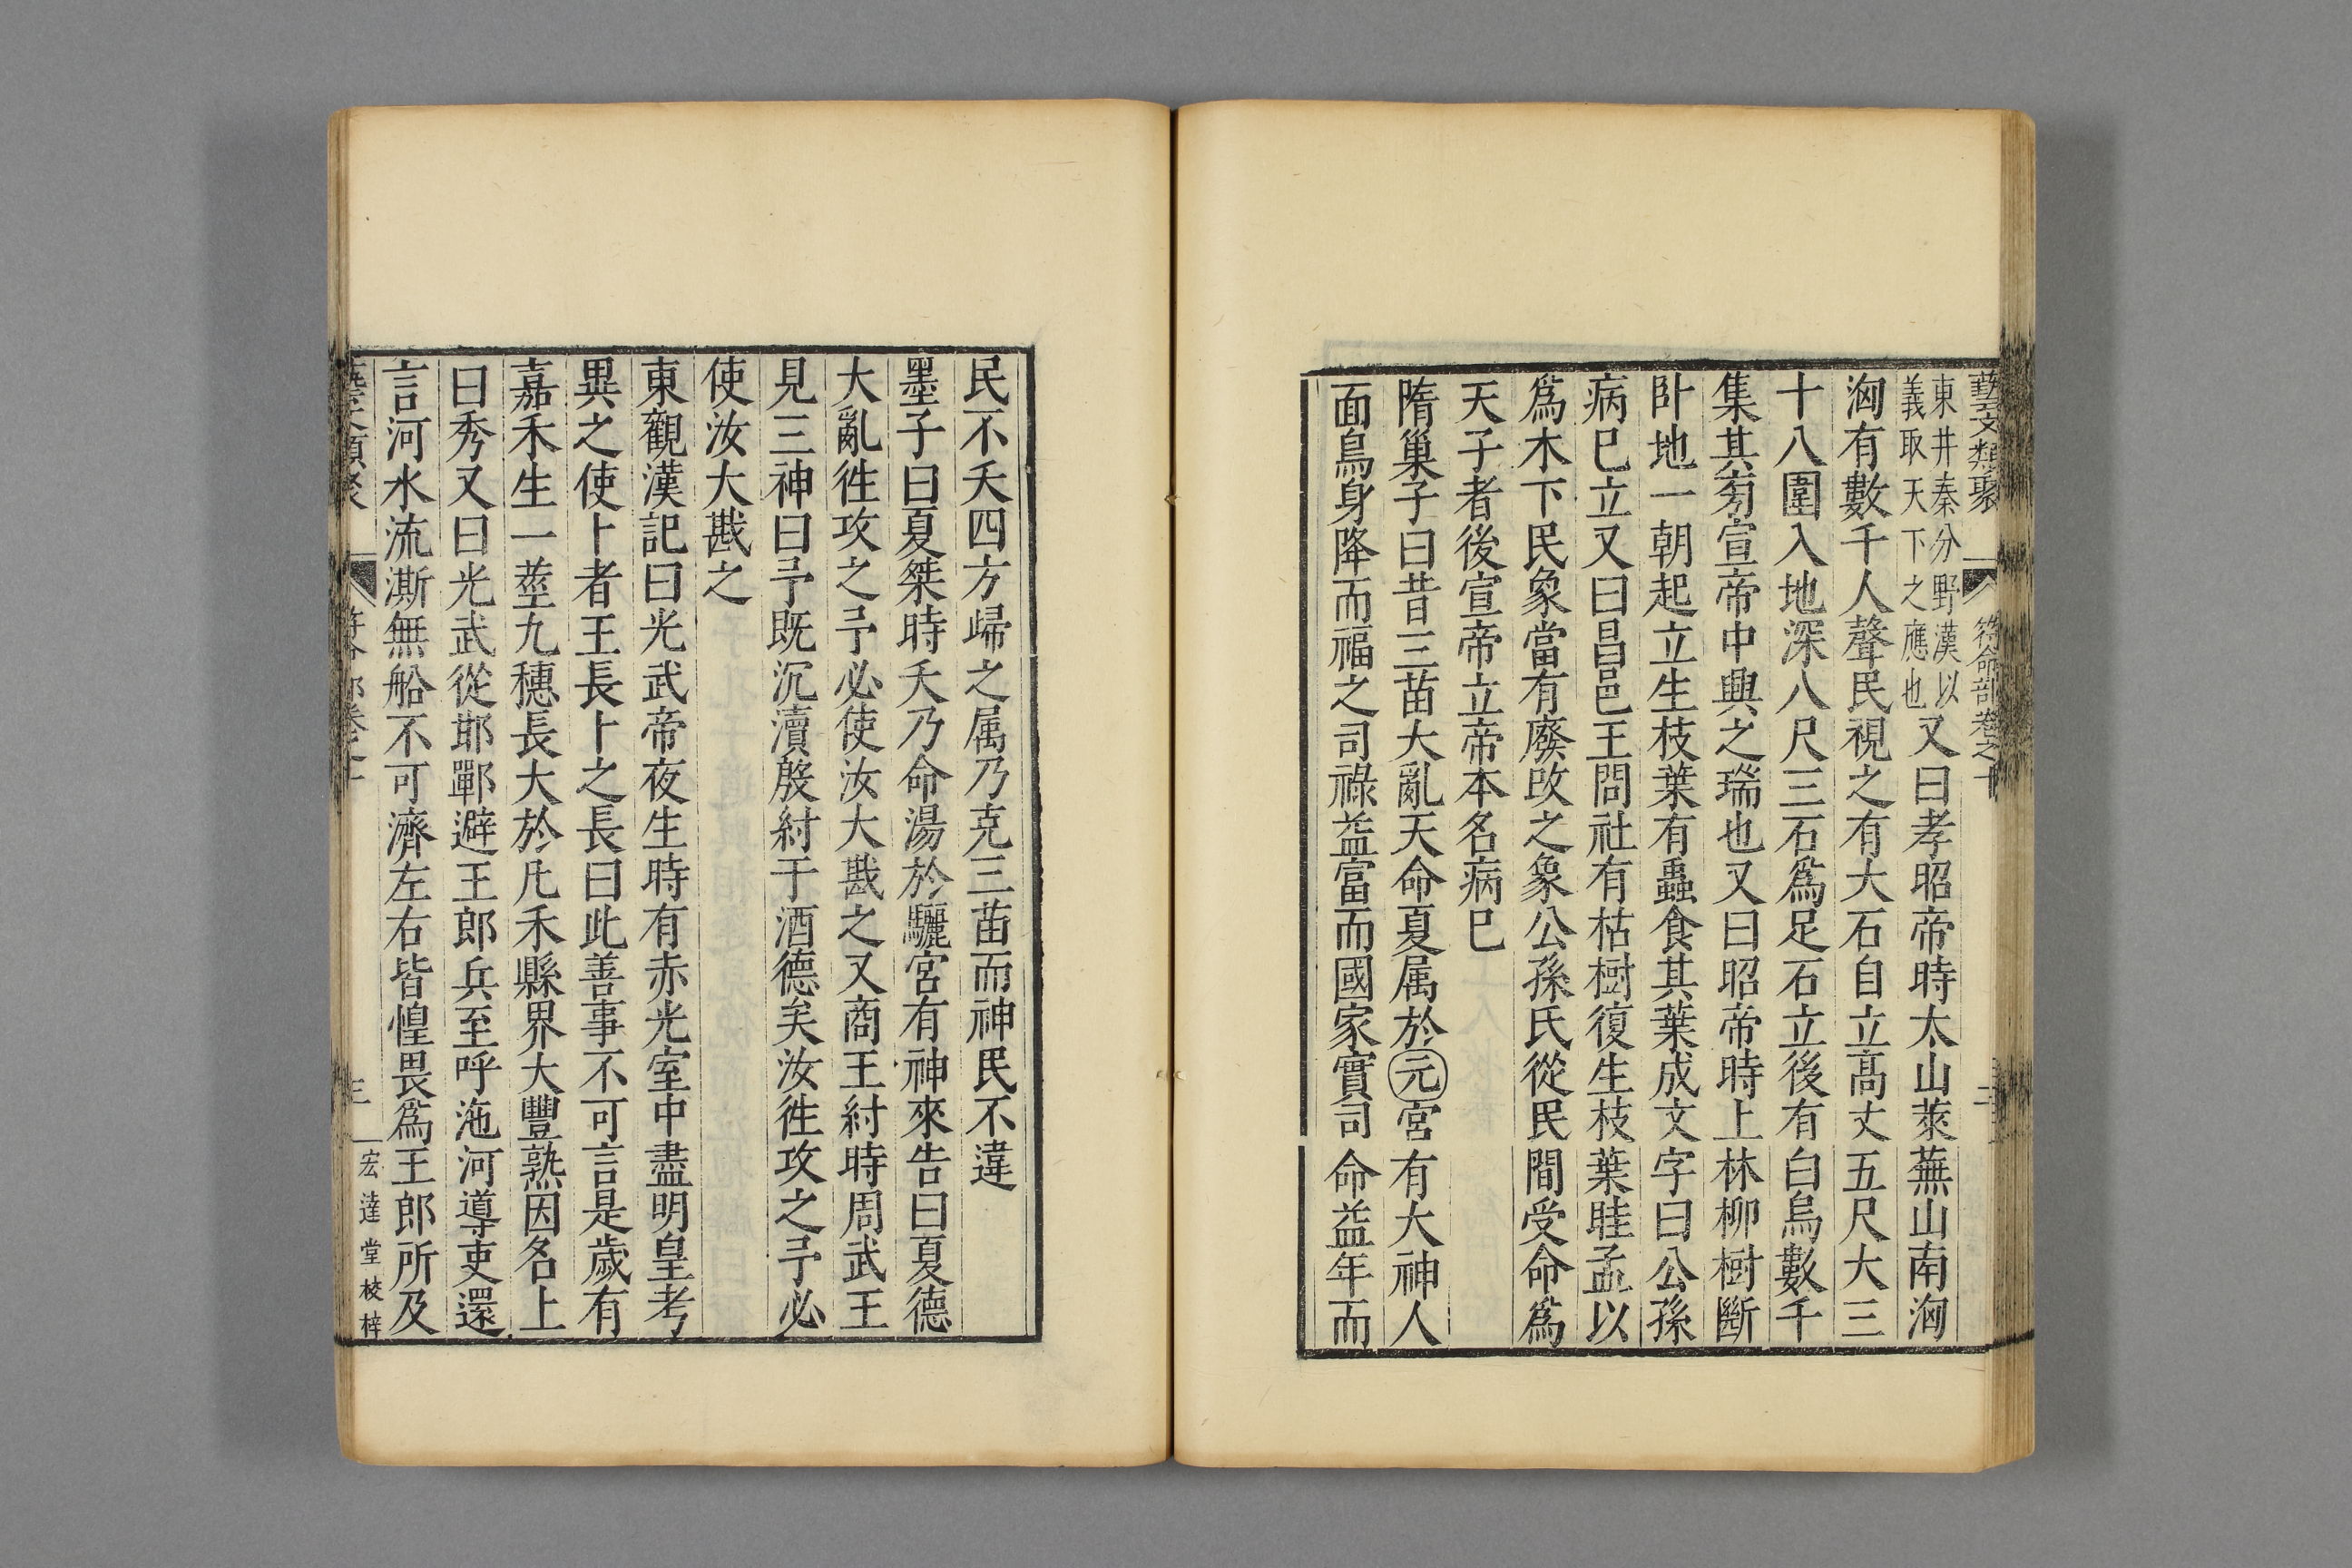 藝文類聚 符命部卷之十 二
東井秦分野漢以
義取天下之應也又曰孝昭帝時太山萊蕪山南洶
洶有數千人聲民視之有大石自立高丈五尺大三
十八圍入地深八尺三石爲足石立後有白烏數千
集其旁宣帝中興之瑞也又曰昭帝時上林柳樹斷
卧地一朝起立生枝葉有蟲食其葉成文字曰公孫
病巳立又曰昌邑王問社有枯樹復生枝葉眭孟以
爲木下民象當有廢改之象公孫氏從民間受命爲
天子者後宣帝立帝本名病巳
隋巢子曰昔三苗大亂天命夏属於元宮有大神人
面鳥身降而福之司祿益富而國家實司命益年而
民不夭四方歸之属乃克三苗而神民不違
墨子曰夏桀時夭乃命湯於驪宮有神來告曰夏德
大亂徃攻之予必使汝大戡之又商王紂時周武王
見三神曰予既沉瀆殷紂于酒德矣汝徃攻之予必
使汝大戡之
東觀漢記曰光武帝夜生時有赤光室中盡明皇考
異之使卜者王長卜之長曰此善事不可言是歲有
嘉禾生一莖九穗長大於凡禾縣界大豐熟因名上
曰秀又曰光武從邯鄲避王郎兵至呼沲河導吏還
言河水流澌無船不可濟左右皆惶畏爲王郎所及
藝文類聚 符命部卷之十 三 宏達堂校梓